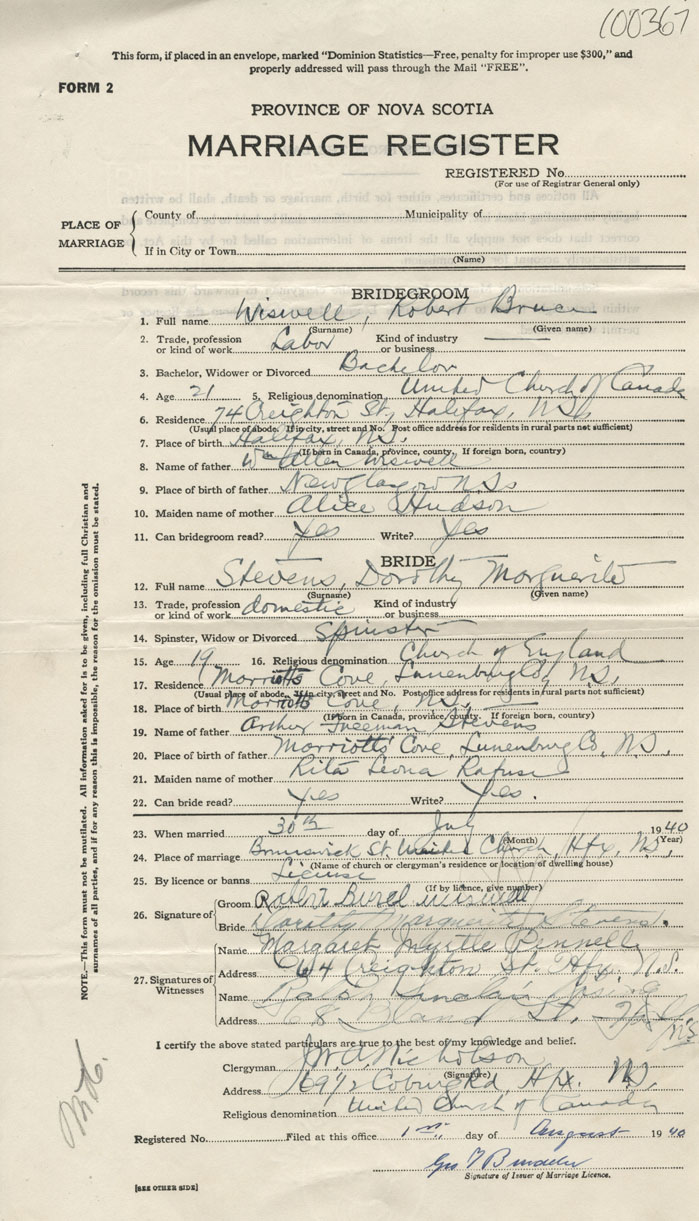 100367
This form, if placed in an envelope, marked "Dominion Statistics—Free, penalty for improper use $300," and
properly addressed will pass through the Mail "FREE".
FORM 2
PROVINCE OF NOVA SCOTIA
MARRIAGE REGISTER
REGISTERED No.
(For use of Registrar General only)
PLACE OF MARRIAGE
County of Municipality of
If in City or Town
(Name)
BRIDEGROOM
1. Full name Wiswell, Robert Bruce
(Surname) (Given name)
2. Trade, profession or kind of work Labor Kind of industry or business —
3. Bachelor, Widower or Divorced Bachelor
4. Age 21 5. Religious denomination United Church of Canada
6. Residence 74 Creighton St., Halifax, N.S.
(Usual place of abode. If in city, street and No. Post office address for residents in rural parts not sufficient)
7. Place of birth Halifax, N.S.
(If born in Canada, province, county. If foreign born, country)
8. Name of father Wm Allen Wiswell
9. Place of birth of father New Glasgow N.S.
10. Maiden name of mother Alice Hudson
11. Can bridegroom read? Yes Write? Yes
BRIDE
12. Full name Stevens, Dorothy Marguerite
(Surname) (Given name)
13. Trade, profession or kind of work domestic Kind of industry or business
14. Spinster, Widow or Divorced Spinster
15. Age 19 16. Religious denomination Church of England
17. Residence Morriotts Cove, Lunenburg Co, N.S.
(Usual place of abode. If in city, street and No. Post office address for residents in rural parts not sufficient)
18. Place of birth Morriotts Cove, N.S.
(If born in Canada, province/county. If foreign born, country)
19. Name of father Arthur Freeman Stevens
20. Place of birth of father Morriotts Cove, Lunenburg Co, N.S.
21. Maiden name of mother Rita Leona Rafuse
22. Can bride read? Yes Write? Yes.
23. When married 30th day of July 1940
(Month) (Year)
24. Place of marriage Brunswick St. United Church, Hfx, N.S.
(Name of church or clergyman's residence or location of dwelling house)
25. By licence or banns License
(If by licence, give number)
26. Signature of
Groom Robert Bruce Wiswell
Bride Dorothy Marguerite Stevens.
27. Signatures of Witnesses
Name Margaret Myrtle
Address 64 Creighton St. Hfx. N.S.
Name Ralph Sinclair
Address 68 Bland St., N.S.
I certify the above stated particulars are true to the best of my knowledge and belief.
Clergyman Nicholson
(Signature)
Address 169 1/2 Coburg Rd, Hfx. N.S.
Religious denomination United Church of Canada
Registered No. Filed at this office 1st. day of August 1940
Geo
Signature of Issuer of Marriage Licence.
[SEE OTHER SIDE]
NOTE.—This form must not be mutilated. All information asked for is to be given, including full Christian and
surnames of all parties, and if for any reason this is impossible, the reason for the omission must be stated.